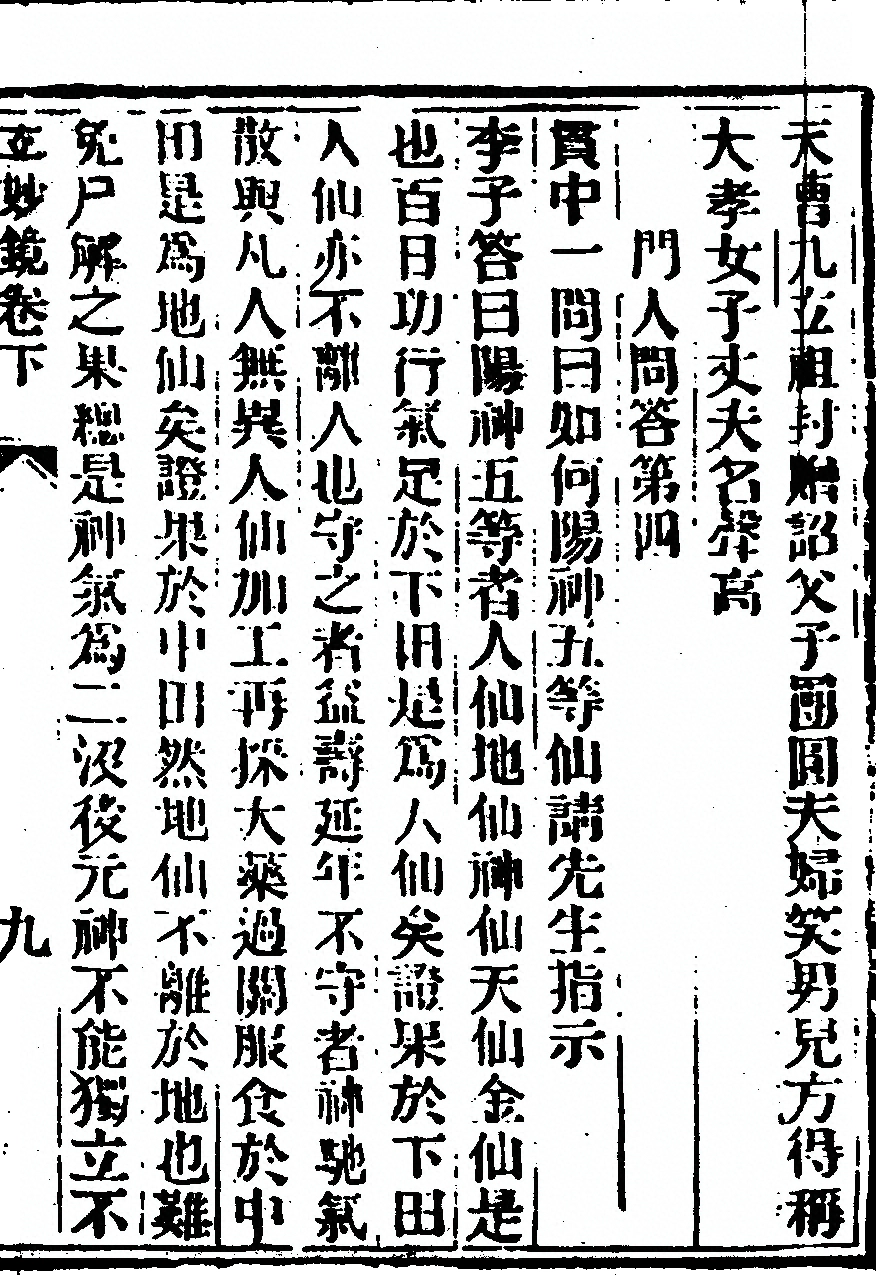 天曹九玄祖封贈詔父子團圓夫婦笑男兒方得稱
大孝女子丈夫名聲高
門人問答第四
貫中一問曰如何陽神五等仙請先生指示
李子答曰陽神五等者人仙地仙神仙天仙金仙是
也百日功行氣足於下田是為人仙矣證果於下田
人仙亦不離人也守之者益壽延年不守者神馳氣
散與凡人無異人仙加工再採大藥過關服食於中
田是為地仙矣證果於中田然地仙不離於地也難
免尸解之果總是神氣為二沒後元神不能獨立不
玄妙鏡卷下
九